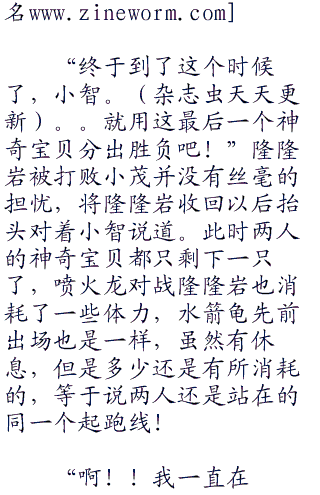 名www.zineworm.com]
“终于到了这个时候
了，小智。（杂志虫天天更
新）。。就用这最后一个神
奇宝贝分出胜负吧！”隆隆
岩被打败小茂并没有丝毫的
担忧，将隆隆岩收回以后抬
头对着小智说道。此时两人
的神奇宝贝都只剩下一只
了，喷火龙对战隆隆岩也消
耗了一些体力，水箭龟先前
出场也是一样，虽然有休
息，但是多少还是有所消耗
的，等于说两人还是站在的
同一个起跑线！
“啊！！我一直在